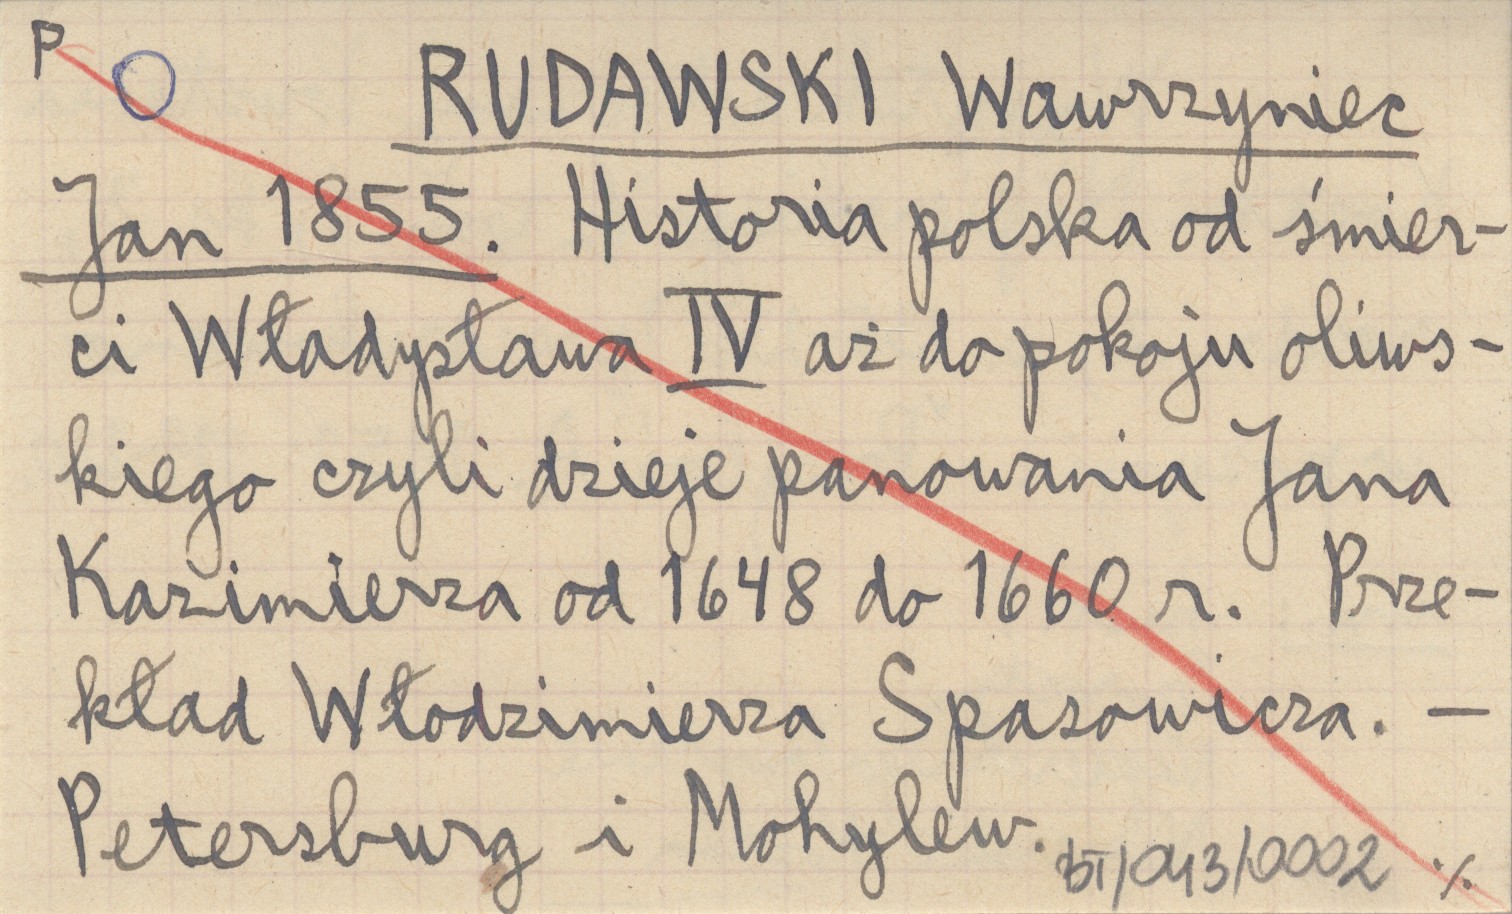 P
RUDAWSKI Wawrzyniec
Jan 1855. Historia polska od śmier-
ci Władysława IV aż do pokoju oliws-
kiego czyli dzieje panowania Jana
Kazimierza od 1648 do 1660 r. Prze-
kład Włodzimierza Spasowicza. —
Petersburg i Mohylew.
bT/043/0002 ./.